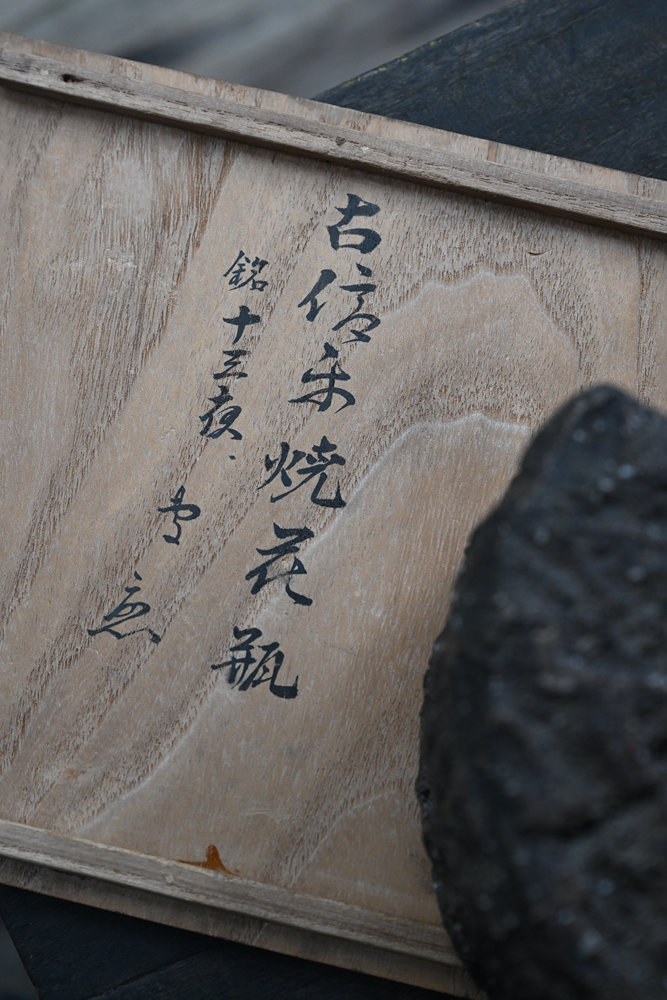 古信楽焼花瓶
銘十三夜.